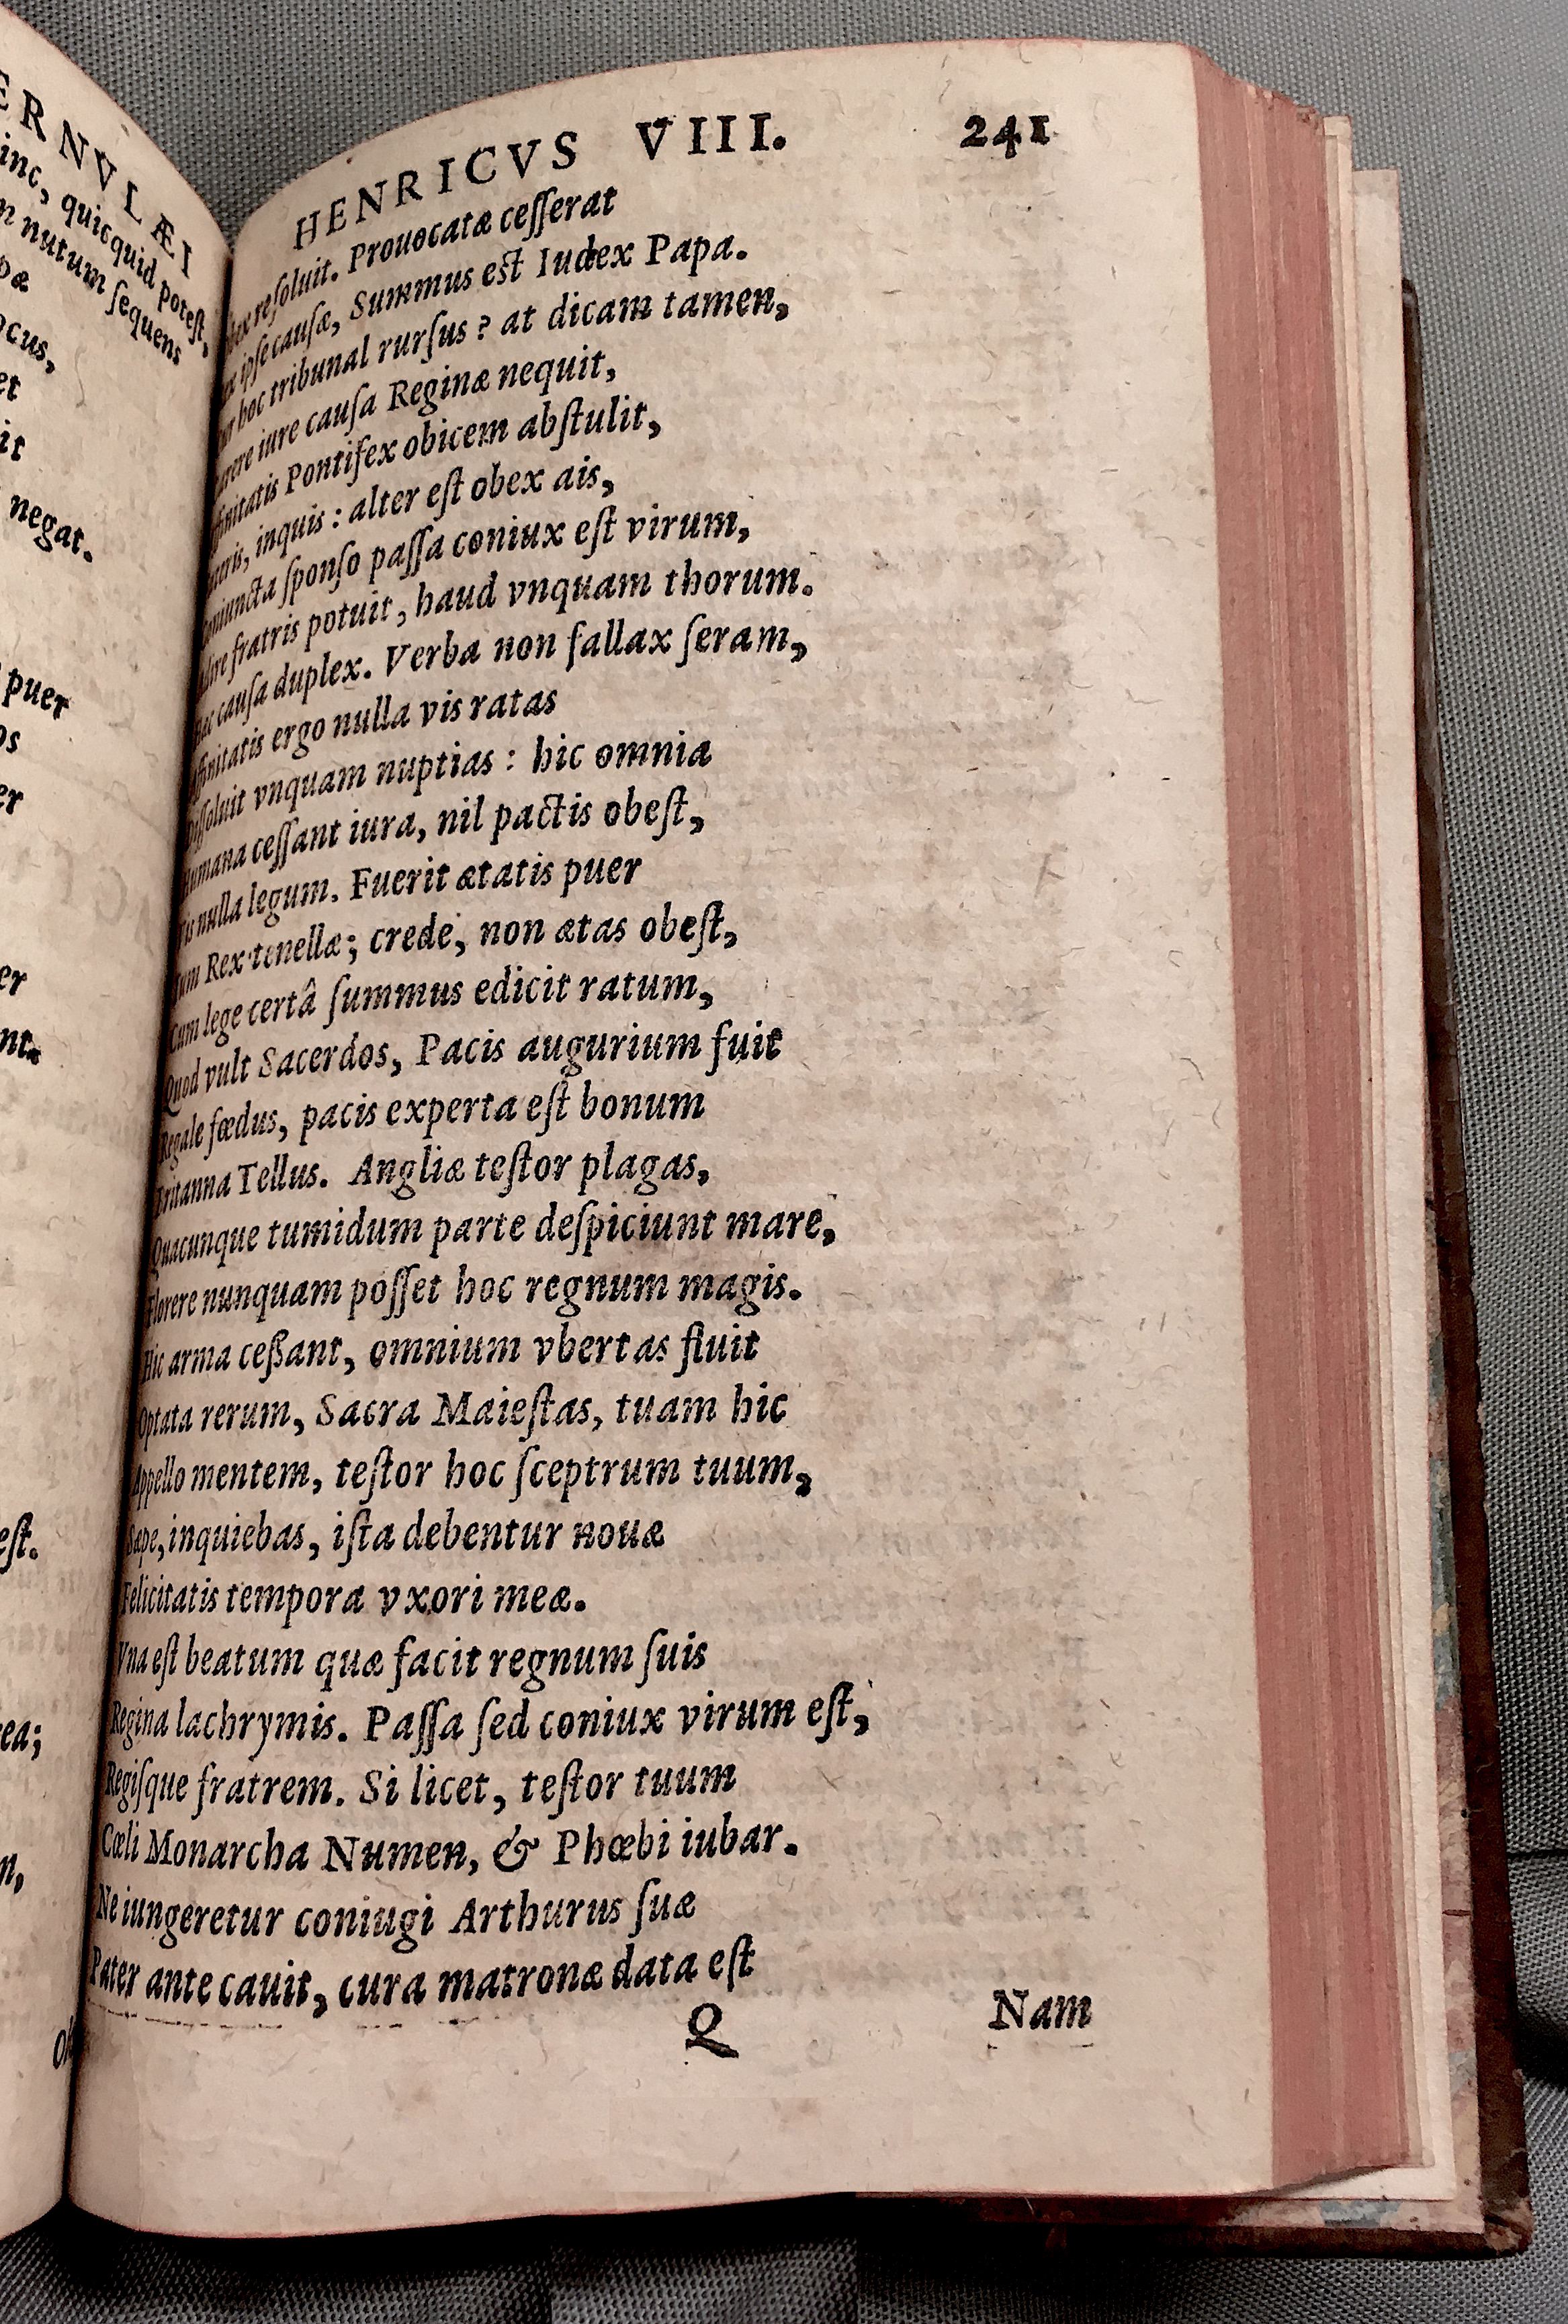 ERNVLÆI
inc, quicquid potest,
n nutum ſequens
ocus,
negat.
puer
er
eſt.
HENRICVS VIII. 241
reſoluit. Prouocatæ ceſſerat
ipſe cauſæ, Summus eſt Iudex Papa.
hoc tribunal rurſus ? at dicam tamen,
iure cauſa Reginæ nequit,
Pontifex obicem abſtulit,
inquis : alter eſt obex ais,
ſponſo paſſa coniux eſt virum,
fratris potuit, haud vnquam thorum.
cauſa duplex. Verba non fallax ſeram,
Affinitatis ergo nulla vis ratas
Diſſoluit vnquam nuptias : hic omnia
Humana ceſſant iura, nil pactis obeſt,
Vis nulla legum. Fuerit ætatis puer
Tum Rex tenellæ; crede, non ætas obeſt,
Cum lege certâ ſummus edicit ratum,
Quod vult Sacerdos, Pacis augurium fuit
Regale fœdus, pacis experta eſt bonum
Britanna Tellus. Angliæ teſtor plagas,
Quacunque tumidum parte deſpiciunt mare,
Florere nunquam poſſet hoc regnum magis.
Hic arma ceßant, omnium vbertas fluit
Optata rerum, Sacra Maieſtas, tuam hic
Appello mentem, teſtor hoc ſceptrum tuum,
Sæpe, inquiebas, iſta debentur nouæ
Felicitatis tempora vxori meæ.
Vna eſt beatum quæ facit regnum ſuis
Regina lachrymis. Paſſa ſed coniux virum eſt,
Regiſque fratrem. Si licet, teſtor tuum
Cœli Monarcha Numen, & Phœbi iubar.
Ne iungeretur coniugi Arthurus ſuæ
Pater ante cauit, cura matronæ data eſt
Q Nam